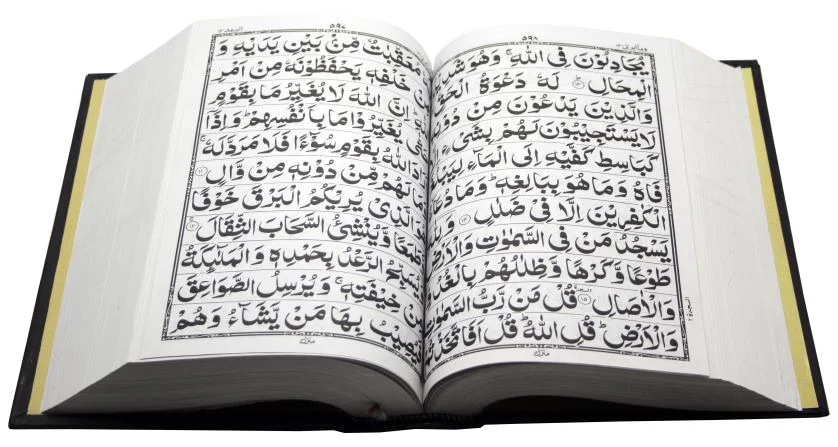 الرعد ۱۳
۵۹۷
مُعَقِّبٰتٌ مِّنْۢ بَيْنِ يَدَيْهِ وَ
مِنْ خَلْفِهٖ يَحْفَظُوْنَهٗ مِنْ اَمْرِ
اِنَّ اللّٰهَ لَا يُغَيِّرُ مَا بِقَوْمٍ
يُغَيِّرُوْا مَا بِاَنْفُسِهِمْ ؕ وَاِذَاۤ
اللّٰهُ بِقَوْمٍ سُوْٓءًا فَلَا مَرَدَّ لَهٗ ۚ
لَهُمْ مِّنْ دُوْنِهٖ مِنْ وَّالٍ ۱۱
الَّذِىْ يُرِيْكُمُ الْبَرْقَ خَوْفًا
طَمَعًا وَّيُنْشِئُ السَّحَابَ الثِّقَالَ ۱۲
يُسَبِّحُ الرَّعْدُ بِحَمْدِهٖ وَالْمَلٰٓئِكَةُ
مِنْ خِيْفَتِهٖ ۚ وَيُرْسِلُ الصَّوَاعِقَ
فَيُصِيْبُ بِهَا مَنْ يَّشَآءُ وَهُمْ
منزل
وما ابرئ ۱۳
۵۹۸
يُجَادِلُوْنَ فِى اللّٰهِ ۚ وَهُوَ شَدِ
الْمِحَالِ ؕ ۱۳ لَهٗ دَعْوَةُ الْحَقِّ
وَالَّذِيْنَ يَدْعُوْنَ مِنْ دُوْنِ
لَا يَسْتَجِيْبُوْنَ لَهُمْ بِشَىْءٍ
كَبَاسِطِ كَفَّيْهِ اِلَى الْمَآءِ لِيَبْلُ
فَاهُ وَمَا هُوَ بِبَالِغِهٖ ؕ وَمَا دُعَا
الْكٰفِرِيْنَ اِلَّا فِىْ ضَلٰلٍ ۱۴ وَلِلّٰ
يَسْجُدُ مَنْ فِى السَّمٰوٰتِ وَالْاَرْضِ
طَوْعًا وَّكَرْهًا وَّظِلٰلُهُمْ بِالْغُدُ
وَالْاٰصَالِ ۱۵ قُلْ مَنْ رَّبُّ السَّمٰوٰ
وَالْاَرْضِ ؕ قُلِ اللّٰهُ ؕ قُلْ اَفَاتَّخَذْ
السجدة ۲
منزل